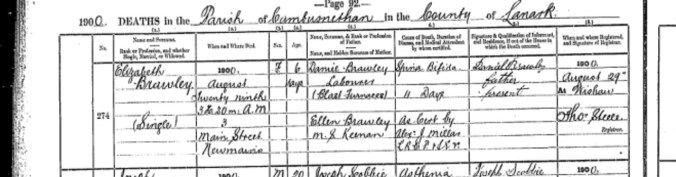 —Page 92.—
1900. DEATHS in the Parish of Cambusnethan in the County of Lanark.
(1.) (2.) (3.) (4.) (5.) (6.) (7.) (8.)
No. Name and Surname. When and Where Died. Sex. Age. Name, Surname, & Rank or Profession of Father. Cause of Death, Duration of Disease, and Medical Attendant by whom certified. Signature & Qualification of Informant, and Residence, if out of the House in which the Death occurred. When and where Registered, and Signature of Registrar.
Rank or Profession, and whether Single, Married, or Widowed. Name, and Maiden Surname of Mother.
Elizabeth 1900. F 6 Daniel Brawley Spina Bifida Daniel Brawley 1900.
Brawley August days Labourer father August 29th
Twenty ninth (Blast Furnace) 11 Days present At Wishaw
3h 20m A.M.
274 (Single) 3 Ellen Brawley As Cert by Thos Steele
Main Street m.s Keenan Alex. J Millar Registrar.
Newmains L.R.C.P.
1900. M 20 Joseph Scobbie Asthenia Joseph Scobbie 1900.